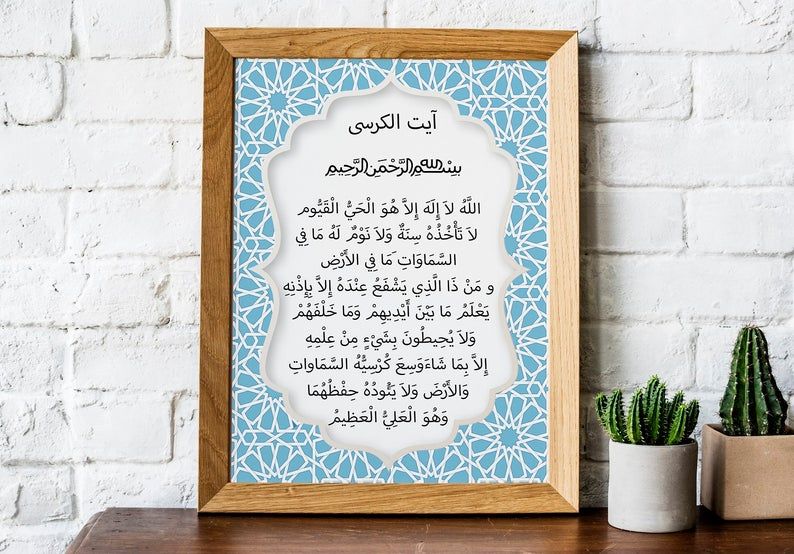 آیت الکرسی
بِسْمِ اللهِ الرَّحْمَنِ الرَّحِيمِ
اللَّهُ لاَ إِلَهَ إِلاَّ هُوَ الْحَيُّ الْقَيُّومُ
لاَ تَأْخُذُهُ سِنَةٌ وَلاَ نَوْمٌ لَهُ مَا فِي
السَّمَاوَاتِ َمَا فِي الأَرْضِ
و مَنْ ذَا الَّذِي يَشْفَعُ عِنْدَهُ إِلاَّ بِإِذْنِهِ
يَعْلَمُ مَا بَيْنَ أَيْدِيهِمْ وَمَا خَلْفَهُمْ
وَلاَ يُحِيطُونَ بِشَيْءٍ مِنْ عِلْمِهِ
إِلاَّ بِمَا شَاءَوَسِعَ كُرْسِيُّهُ السَّمَاواتِ
وَالأَرْضَ وَلاَ يَئُودُهُ حِفْظُهُمَا
وَهُوَ الْعَلِيُّ الْعَظِيمُ